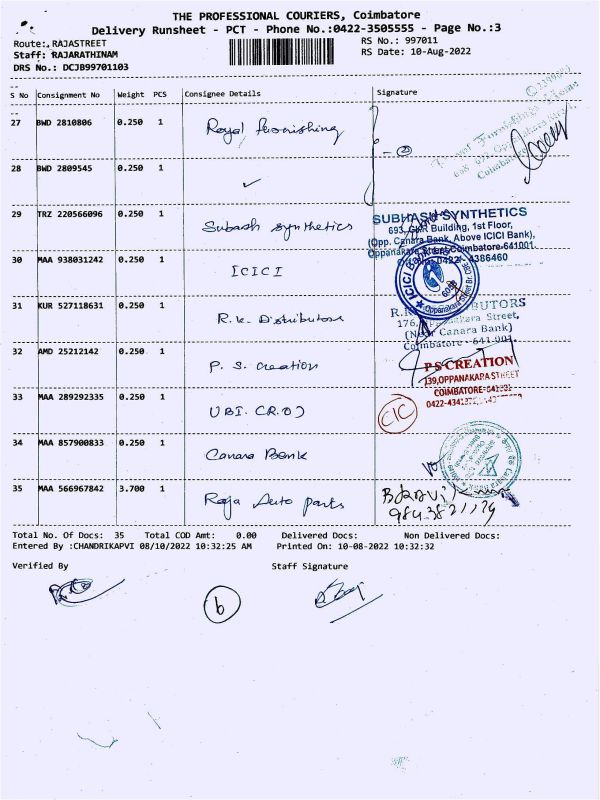 THE PROFESSIONAL COURIERS, Coimbatore
Delivery Runsheet - PCT - Phone No.:0422-3505555 - Page No.:3
Route: RAJASTREET
RS No.: 997011
Staff: RAJARATHINAM
RS Date: 10-Aug-2022
DRS No.: DCJB99701103
S No Consignment No Weight PCS Consignee Details Signature
27 BWD 2810806 0.250 1 Royal furnishing
28 BWD 2809545 0.250 1 ✓
29 TRZ 220566096 0.250 1 Subash Synthetics
SUBHASH SYNTHETICS
693, GKR Building, 1st Floor,
(Opp. Canara Bank, Above ICICI Bank),
Oppanakara Street, Coimbatore-641001.
4386460
30 MAA 938031242 0.250 1 ICICI
31 KUR 527118631 0.250 1 R.K. Distributors
(Near Canara Bank)
Coimbatore - 641 001.
32 AMD 25212142 0.250 1 P. S. Creation
P S CREATION
139,OPPANAKARA STREET
COIMBATORE-641001
33 MAA 289292335 0.250 1 UBI. CR.O)
CIC
34 MAA 857900833 0.250 1 Canara Bank
35 MAA 566967842 3.700 1 Raja Auto parts
Total No. Of Docs: 35 Total COD Amt: 0.00 Delivered Docs: Non Delivered Docs:
Entered By :CHANDRIKAPVI 08/10/2022 10:32:25 AM Printed On: 10-08-2022 10:32:32
Verified By Staff Signature
6